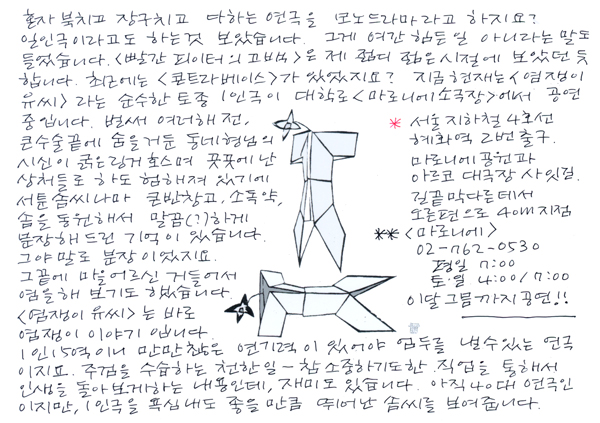 혼자 북치고 장구치고 다하는 연극을 모노드라마라고 하지요?
일인극이라고도 하는것 보았습니다. 그게 여간 힘든일 아니라는 말도
들었습니다. <빨간 피이터의 고백>은 제 젊디 젊은시절에 보았던 듯
합니다. 최근에는 <콘트라베이스>가 있었지요? 지금현재는 <염쟁이
유씨> 라는 순수한 토종 1인극이 대학로 <마로니에소극장>에서 공연
중입니다. 벌써 여러해 전,
폭수술끝에 숨을거둔 동네형님의
시신이 굵은링거 호스며 곳곳에 난
상처들로 하도 험해져 있기에
서툰솜씨나마 큰반창고, 소독약,
솜을 동원해서 말끔(?)하게
분장해 드린 기억이 있습니다.
그야말로 분장 이었지요.
그끝에 마을어르신 거들어서
염을해 보기도 했습니다.
<염쟁이 유씨>는 바로
염쟁이 이야기 입니다.
1인 15역이니 만만찮은 연기력이 있어야 엄두를 낼수있는 연극
이지요. 주검을 수습하는 천한일 - 참 소중하기도한 직업을 통해서
인생을 돌아보게하는 내용인데, 재미도 있습니다. 아직 40대 연극인
이지만, 1인극을 욕심내도 좋을만큼 뛰어난 솜씨를 보여줍니다.
* 서울지하철 4호선
혜화역 2번출구.
마로니에 공원과
아르코 대극장 사잇길.
길끝 막다른데서
오른편으로 40m 지점
** <마로니에>
02-762-0530
평일 7:00
토·일 4:00/7:00
이달 그믐까지 공연!!